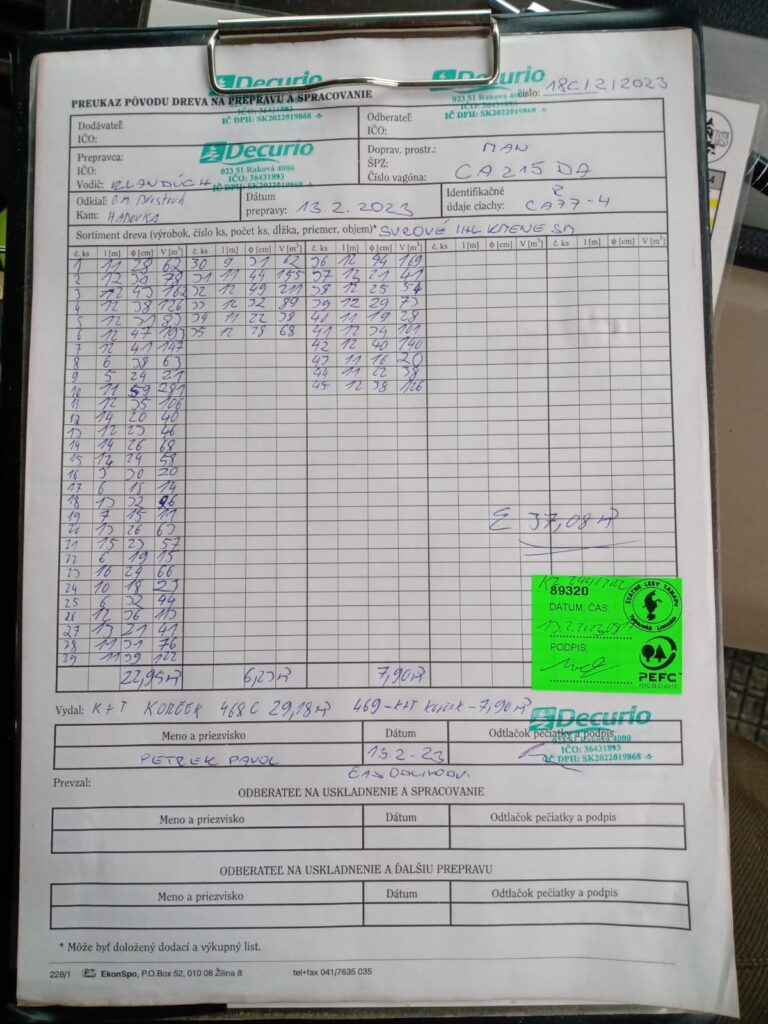 Decurio
Decurio
023 51 Raková 4000
IČO: 36431893
IČ DPH: SK2022019868
PREUKAZ PÔVODU DREVA NA PREPRAVU A SPRACOVANIE
číslo: 18C/2/2023
Dodávateľ:
IČO:
Odberateľ:
IČO:
Prepravca:
IČO:
Vodič:
Decurio
023 51 Raková 4000
IČO: 36431893
IČ DPH: SK2022019868
Doprav. prostr.: MAN
ŠPZ:
Číslo vagóna: CA 215 DA
Odkiaľ:
Kam:
Dátum
prepravy: 13.2.2023
Identifikačné
údaje ciachy: CA77-4
Sortiment dreva (výrobok, číslo ks, počet ks, dĺžka, priemer, objem)* SUROVÉ IHL KMENE SM
č. ks l [m] ϕ [cm] V [m³] č. ks l [m] ϕ [cm] V [m³] č. ks l [m] ϕ [cm] V [m³] č. ks l [m] ϕ [cm] V [m³] č. ks l [m] ϕ [cm] V [m³]
1 11 28 62 30 9 31 62 36 12 44 169
2 12 30 78 31 11 44 155 37 12 21 41
3 12 43 162 32 12 49 211 38 12 25 54
4 12 38 126 33 12 32 89 39 12 29 73
5 12 31 83 34 11 22 38 40 11 19 28
6 12 47 193 35 12 28 68 41 12 34 101
7 12 41 147 42 12 40 140
8 6 38 63 43 11 16 20
9 5 24 21 44 11 22 38
10 11 59 281 45 12 38 126
11 12 35 106
12 14 20 40
13 12 23 46
14 14 26 68
15 12 24 51
16 3 30 20
17 6 18 14
18 13 32 96
19 7 15 11
20 13 26 63
21 15 23 57
22 6 19 15
23 16 24 66
24 10 18 23
25 6 32 44
26 12 36 113
27 13 21 41
28 11 31 76
29 11 39 122
Σ 37,08 m³
89320
DÁTUM, ČAS:
PODPIS:
ŠTÁTNE LESY TANAPU
Tatranská Lomnica
PEFC
22,95 m³ 6,23 m³ 7,90 m³
Vydal: K+T KORČEK 468 C 29,18 m³ 469 - K+T - 7,90 m³
Decurio
023 51 Raková 4000
IČO: 36431893
IČ DPH: SK2022019868
Meno a priezvisko Dátum Odtlačok pečiatky a podpis
PETREK PAVOL 13.2-23
ČAS ODCHODU:
Prevzal:
ODBERATEĽ NA USKLADNENIE A SPRACOVANIE
Meno a priezvisko Dátum Odtlačok pečiatky a podpis
ODBERATEĽ NA USKLADNENIE A ĎALŠIU PREPRAVU
Meno a priezvisko Dátum Odtlačok pečiatky a podpis
* Môže byť doložený dodací a výkupný list.
228/1 EkonSpo, P.O.Box 52, 010 08 Žilina 8 tel+fax 041/7635 035